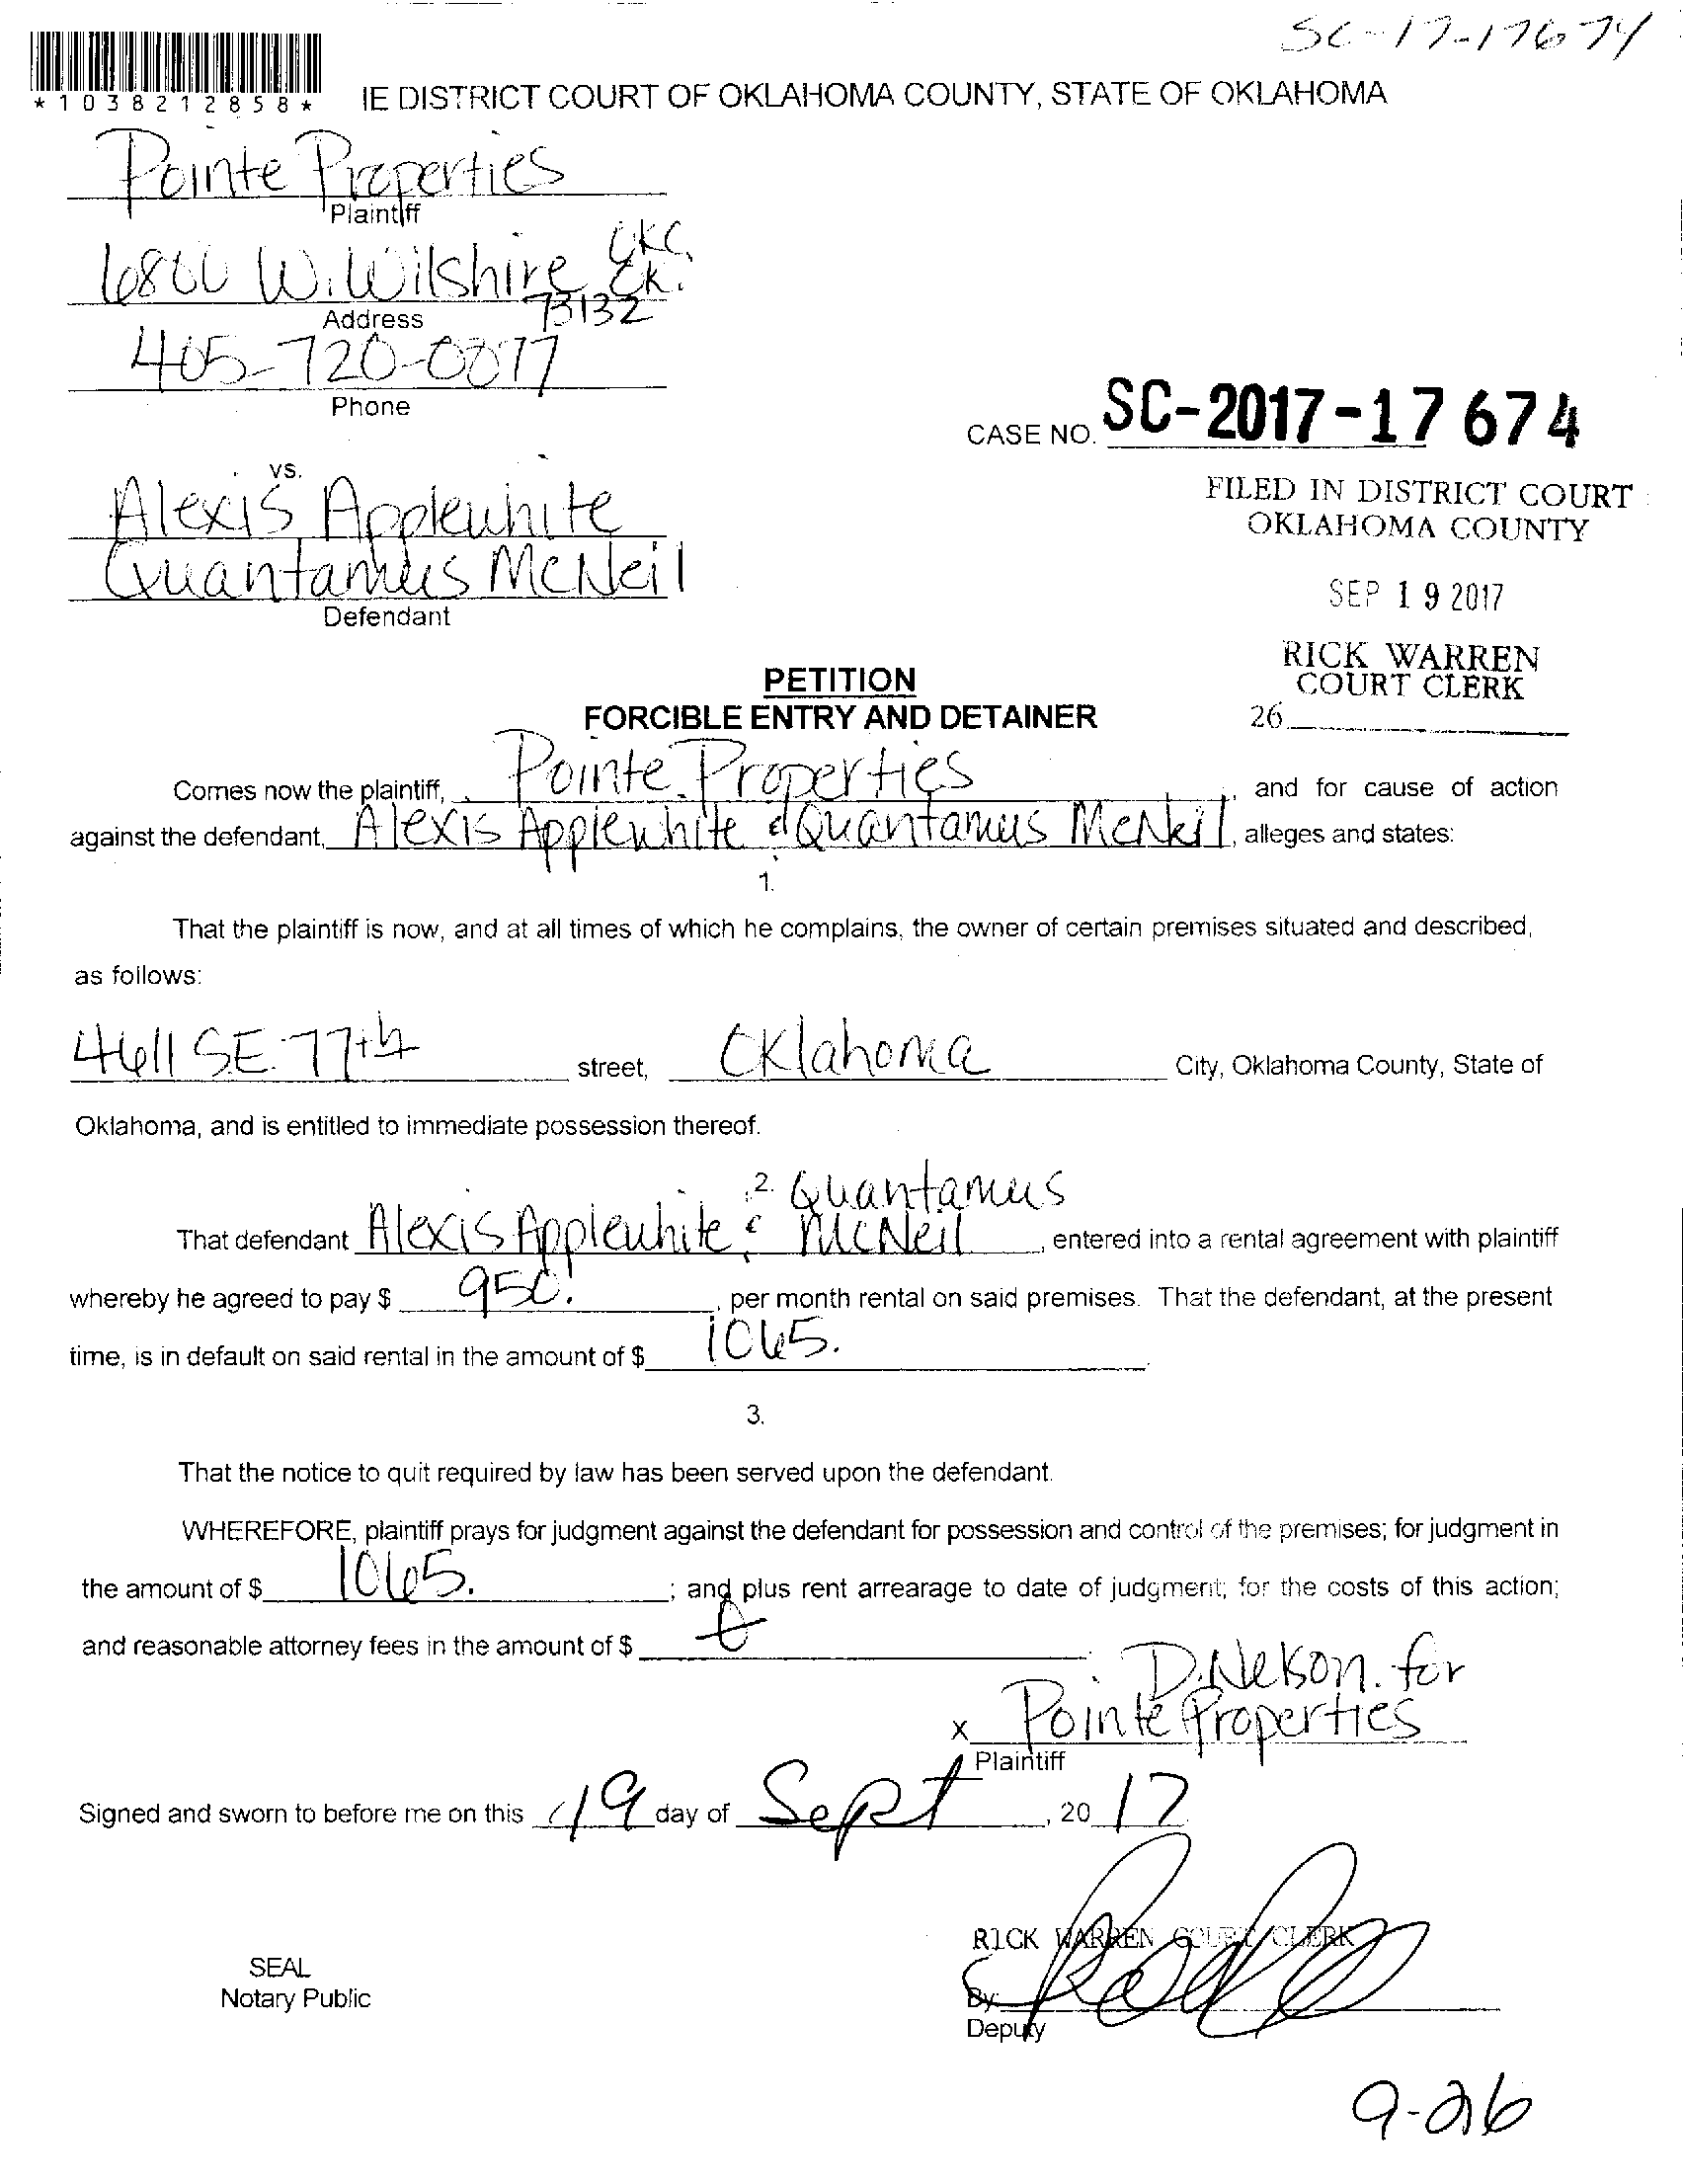 SC-17-17674
*1038212858*
IE DISTRICT COURT OF OKLAHOMA COUNTY, STATE OF OKLAHOMA
Pointe Properties
Plaintiff
6800 W. Wilshire OKC, OK. 73132
Address
405-720-0077
Phone
CASE NO. SC-2017-17674
vs.
Alexis Applewhite
Quantamus McNeil
Defendant
FILED IN DISTRICT COURT
OKLAHOMA COUNTY
SEP 19 2017
RICK WARREN
COURT CLERK
26
PETITION
FORCIBLE ENTRY AND DETAINER
Comes now the plaintiff, Pointe Properties, and for cause of action
against the defendant, Alexis Applewhite & Quantamus McNeil, alleges and states:
1.
That the plaintiff is now, and at all times of which he complains, the owner of certain premises situated and described,
as follows:
4611 SE. 77th street, Oklahoma City, Oklahoma County, State of
Oklahoma, and is entitled to immediate possession thereof.
2.
That defendant Alexis Applewhite & Quantamus McNeil, entered into a rental agreement with plaintiff
whereby he agreed to pay $ 950. , per month rental on said premises. That the defendant, at the present
time, is in default on said rental in the amount of $ 1065. .
3.
That the notice to quit required by law has been served upon the defendant.
WHEREFORE, plaintiff prays for judgment against the defendant for possession and control of the premises; for judgment in
the amount of $ 1065. ; and plus rent arrearage to date of judgment; for the costs of this action;
and reasonable attorney fees in the amount of $ 0 .
D. Nelson. for
x Pointe Properties
Plaintiff
Signed and sworn to before me on this 19 day of Sept, 20 17
RICK WARREN COURT CLERK
SEAL
Notary Public
By:
Deputy
9-26